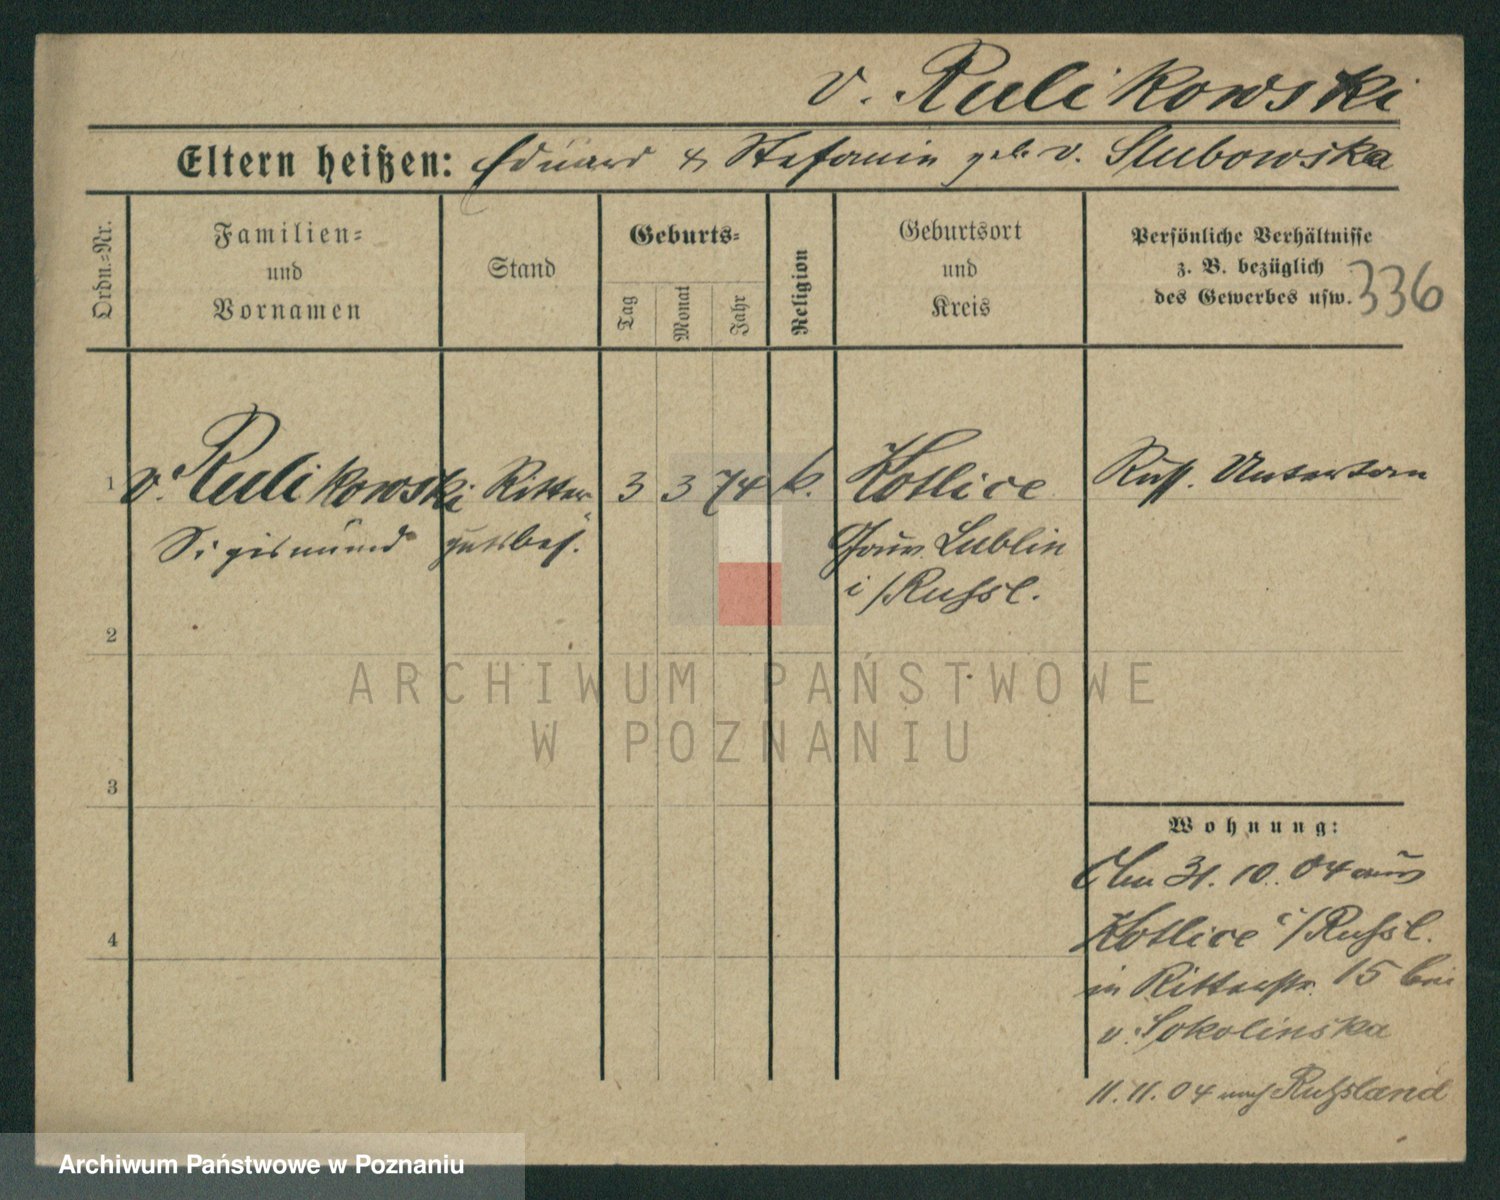 v. Rulikowski
Eltern heißen: Eduard & Stefanie geb. v. Slubowska
Ordn.-Nr.
Familien-
und
Vornamen
Stand
Geburts-
Tag
Monat
Jahr
Religion
Geburtsort
und
Kreis
Persönliche Verhältnisse
z. B. bezüglich
des Gewerbes usw.
336
1 v. Rulikowski Ritter- 3 3 74 k. Kotlice Russ. Untertan
Sigismund gutsbes. Gouv. Lublin
i/Russl.
2
3
4
Wohnung:
31. 10. 04 aus
Kotlice i/Russl.
in Ritterstr. 15 bei
v. Sokolinska
11. 11. 04 nach Russland
ARCHIWUM PAŃSTWOWE
W POZNANIU
Archiwum Państwowe w Poznaniu